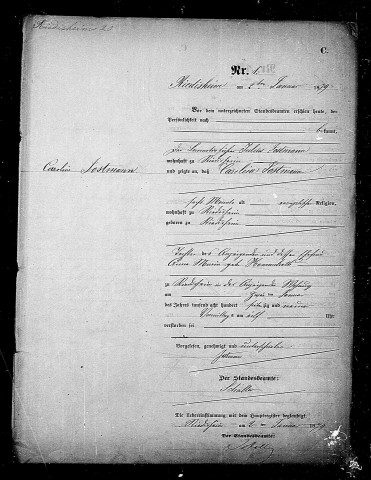 Riedisheim
C.
Nr. 1.
Riedisheim am 2ten Januar 1879
Vor dem unterzeichneten Standesbeamten erschien heute, der
Persönlichkeit nach
bekannt,
der Julius Jostmann
wohnhaft zu Riedisheim
und zeigte an, daß Caroline Jostmann
Caroline Jostmann
sechs Monate alt, evangelischer Religion,
wohnhaft zu Riedisheim
geboren zu Riedisheim
Tochter des Anzeigenden und dessen Ehefrau
Anna Maria geb.
zu Riedisheim in des Anzeigenden Wohnung
am Januar
des Jahres tausend acht hundert siebenzig und neun
Vormittags um elf Uhr
verstorben sei.
Vorgelesen, genehmigt und unterschrieben
Der Standesbeamte:
Die Uebereinstimmung mit dem Hauptregister beglaubigt
Riedisheim am 2. Januar 1879
Der Standesbeamte: